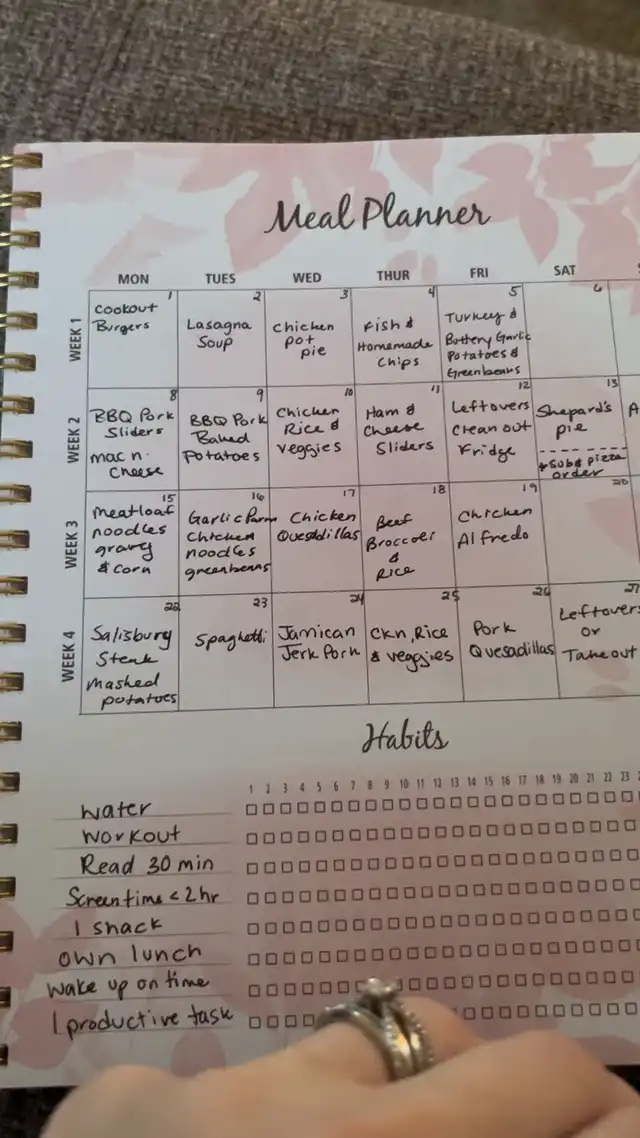 Meal Planner
MON TUES WED THUR FRI SAT
WEEK 1
1
Cookout
Burgers
2
Lasagna
Soup
3
Chicken
pot
pie
4
Fish &
Homemade
Chips
5
Turkey &
Buttery Garlic
Potatoes &
Greenbeans
6
WEEK 2
8
BBQ Pork
Sliders
mac n.
cheese
9
BBQ Pork
Baked
Potatoes
10
Chicken
Rice &
veggies
11
Ham &
Cheese
Sliders
12
Leftovers
clean out
Fridge
13
Shepard's
pie
+ Sub & pizza
order
A
WEEK 3
15
meatloaf
noodles
gravy
& corn
16
Garlic Parm
Chicken
noodles
greenbeans
17
Chicken
Quesadillas
18
Beef
Broccoli
&
Rice
19
Chicken
Alfredo
20
WEEK 4
22
Salisbury
Steak
mashed
potatoes
23
Spaghetti
24
Jamican
Jerk Pork
25
Ckn, Rice
& veggies
26
Pork
Quesadillas
27
Leftovers
or
Takeout
Habits
1 2 3 4 5 6 7 8 9 10 11 12 13 14 15 16 17 18 19 20 21 22 23
water
workout
Read 30 min
Screentime < 2hr
1 snack
own lunch
wake up on time
1 productive task